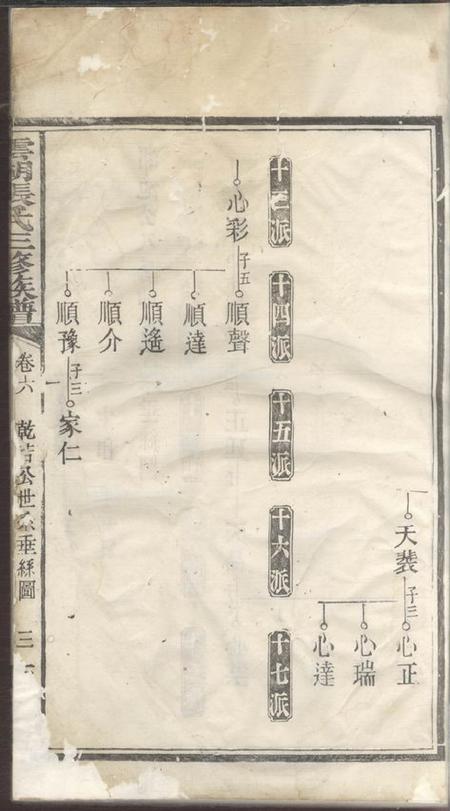 天裝
子三
心正
心瑞
心達
十三派
十四派
十五派
十六派
十七派
心彩
子五
順聲
順達
順遙
順介
順豫
子三
家仁
雲湖張氏三修族譜
卷六
公世系垂絲圖
三